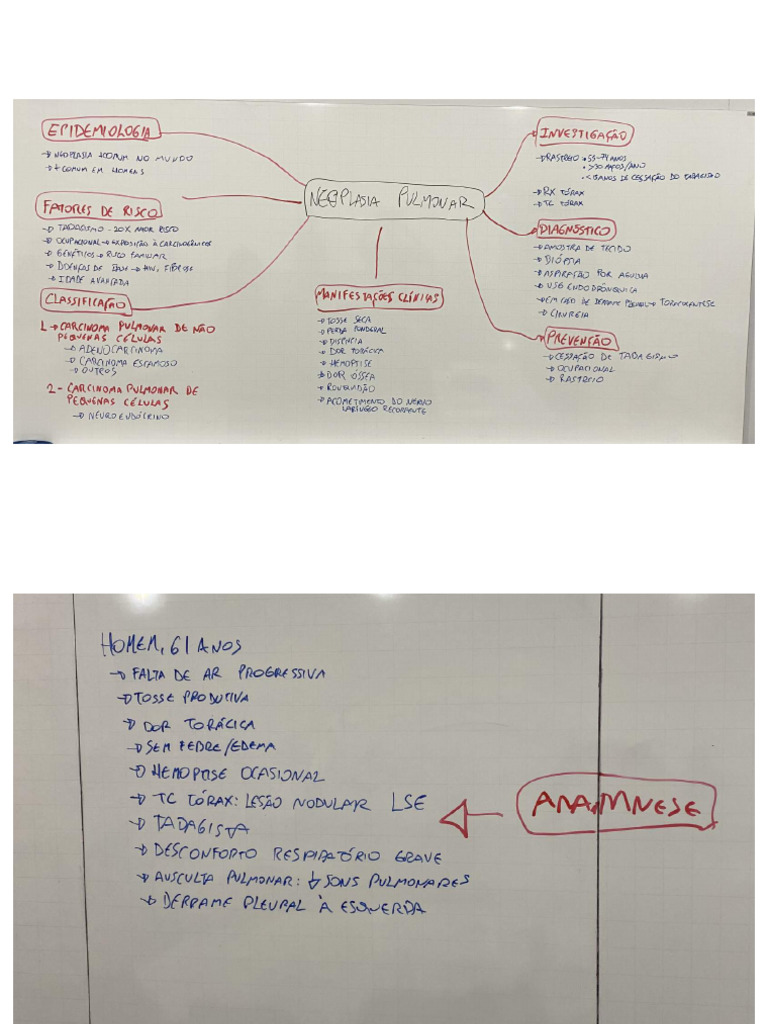 EPIDEMIOLOGIA
→ NEOPLASIA + COMUM NO MUNDO
→ + COMUM EM HOMENS
FATORES DE RISCO
→ TABAGISMO - 20X MAIOR RISCO
→ OCUPACIONAL → EXPOSIÇÃO À CARCINOGÊNICOS
→ GENÉTICOS → RISCO FAMILIAR
→ DOENÇAS DE BASE → HIV, FIBROSE
→ IDADE AVANÇADA
CLASSIFICAÇÃO
1 → CARCINOMA PULMONAR DE NÃO
PEQUENAS CÉLULAS
→ ADENOCARCINOMA
→ CARCINOMA ESCAMOSO
→ OUTROS
2 - CARCINOMA PULMONAR DE
PEQUENAS CÉLULAS
→ NEUROENDÓCRINO
NEOPLASIA PULMONAR
MANIFESTAÇÕES CLÍNICAS
→ TOSSE SECA
→ PERDA PONDERAL
→ DISPNEIA
→ DOR TORÁCICA
→ HEMOPTISE
→ DOR ÓSSEA
→ ROUQUIDÃO
→ ACOMETIMENTO DO NERVO
LARÍNGEO RECORRENTE
INVESTIGAÇÃO
→ RASTREIO • 55-74 ANOS
• >30 MAÇOS/ANO
• < 15 ANOS DE CESSAÇÃO DO TABAGISMO
→ RX TÓRAX
→ TC TÓRAX
DIAGNÓSTICO
→ AMOSTRA DE TECIDO
→ BIÓPSIA
→ ASPIRAÇÃO POR AGULHA
→ USG ENDOBRÔNQUICA
→ EM CASO DE DERRAME PLEURAL → TORACOCENTESE
→ CIRURGIA
PREVENÇÃO
→ CESSAÇÃO DE TABAGISMO
→ OCUPACIONAL
→ RASTREIO
HOMEM, 61 ANOS
→ FALTA DE AR PROGRESSIVA
→ TOSSE PRODUTIVA
→ DOR TORÁCICA
→ SEM FEBRE/EDEMA
→ HEMOPTISE OCASIONAL
→ TC TÓRAX: LESÃO NODULAR LSE
→ TABAGISTA
→ DESCONFORTO RESPIRATÓRIO GRAVE
→ AUSCULTA PULMONAR: ↓ SONS PULMONARES
→ DERRAME PLEURAL À ESQUERDA
ANAMNESE